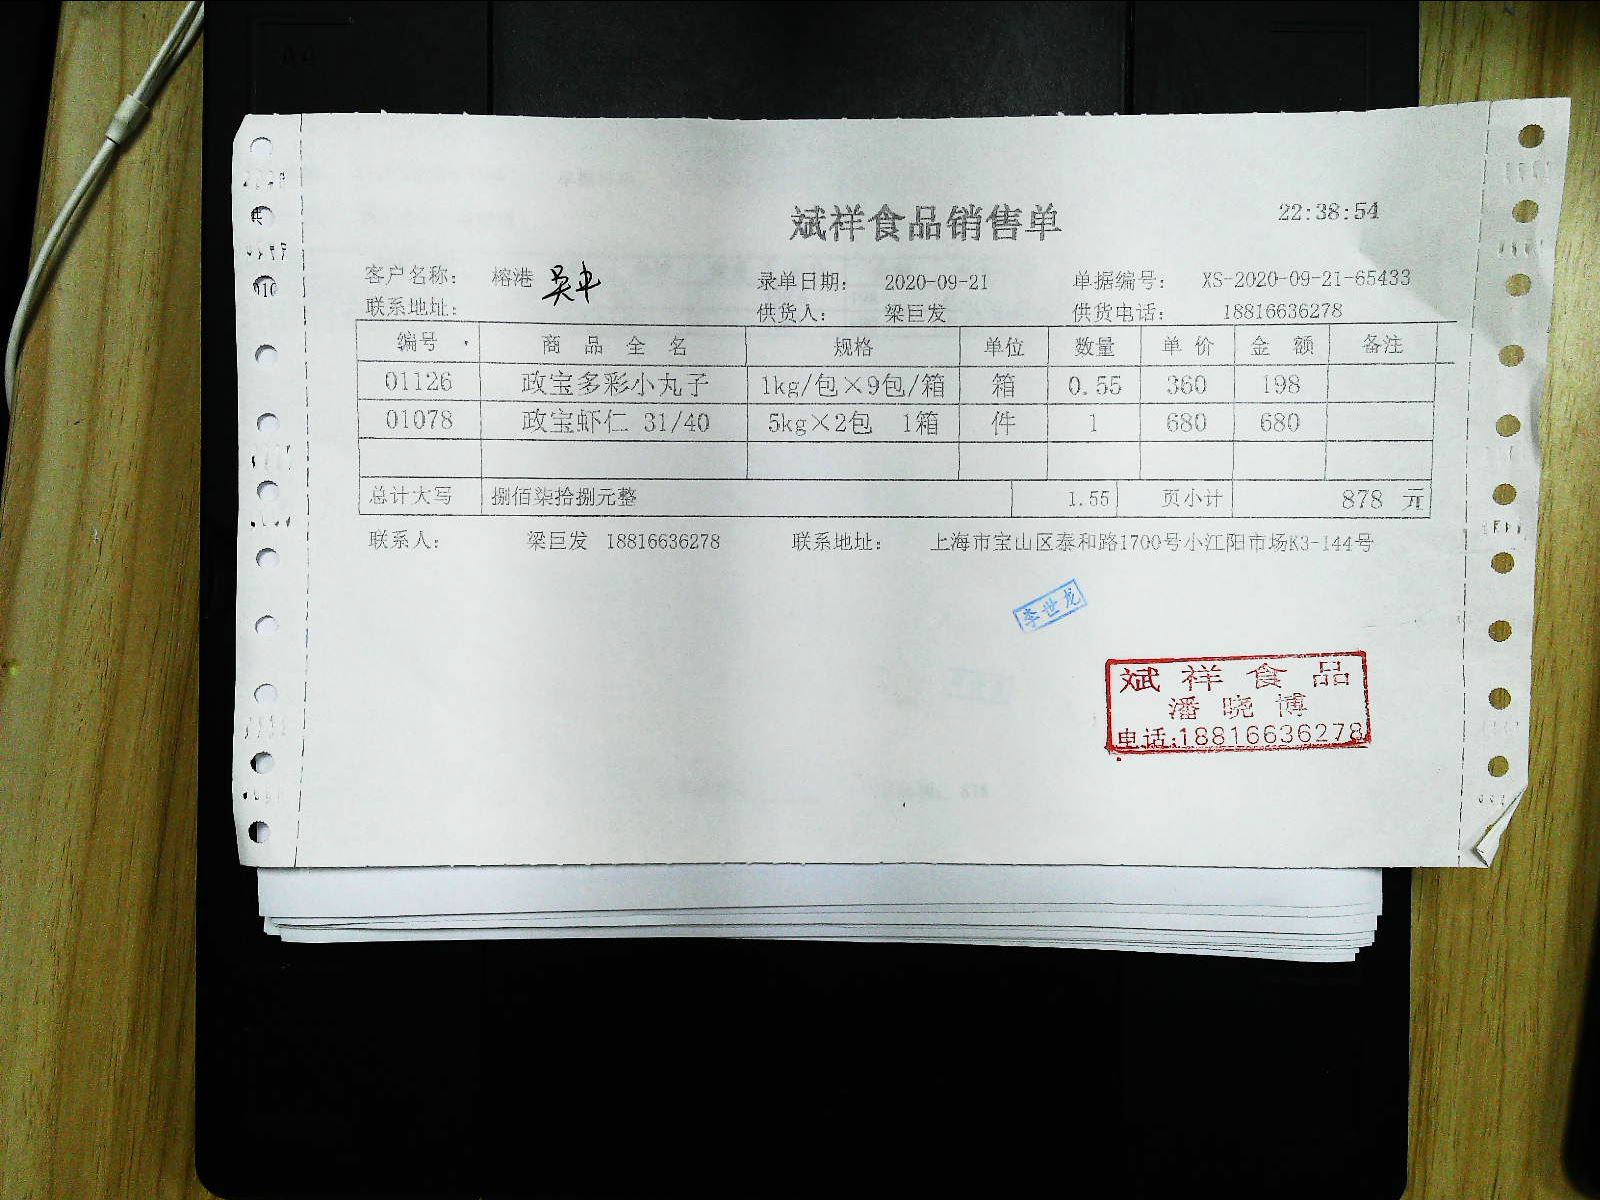 斌祥食品销售单
22:38:54
客户名称： 榕港 录单日期： 2020-09-21 单据编号： XS-2020-09-21-65433
联系地址： 供货人： 梁巨发 供货电话： 18816636278
编号 商品全名 规格 单位 数量 单价 金额 备注
01126 政宝多彩小丸子 1kg/包×9包/箱 箱 0.55 360 198
01078 政宝虾仁 31/40 5kg×2包 1箱 件 1 680 680
总计大写 捌佰柒拾捌元整 1.55 页小计 878 元
联系人： 梁巨发 18816636278 联系地址： 上海市宝山区泰和路1700号小江阳市场K3-144号
李世龙
斌祥食品
潘晓博
电话:18816636278